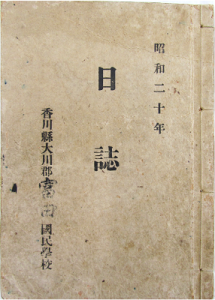 昭和二十年
日誌
香川縣大川郡富田國民學校